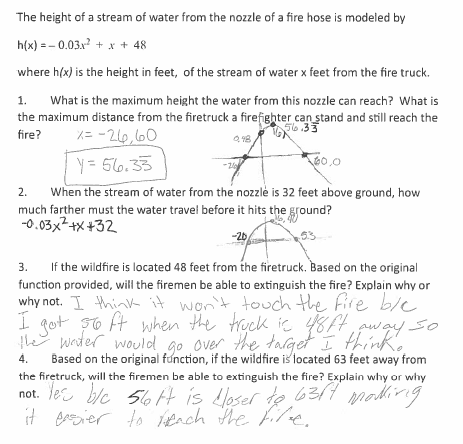 The height of a stream of water from the nozzle of a fire hose is modeled by
h(x) = – 0.03x² + x + 48
where h(x) is the height in feet, of the stream of water x feet from the fire truck.
1. What is the maximum height the water from this nozzle can reach? What is
the maximum distance from the firetruck a firefighter can stand and still reach the
fire? x = -26, 60
56.33
y = 56.33
60,0
2. When the stream of water from the nozzle is 32 feet above ground, how
much farther must the water travel before it hits the ground?
-0.03x² + x + 32
-20
53
3. If the wildfire is located 48 feet from the firetruck. Based on the original
function provided, will the firemen be able to extinguish the fire? Explain why or
why not. I think it won't touch the fire b/c
I got 56 ft when the truck is 48ft away so
the water would go over the target I think.
4. Based on the original function, if the wildfire is located 63 feet away from
the firetruck, will the firemen be able to extinguish the fire? Explain why or why
not. Yes b/c 56 ft is closer to 63ft making
it easier to reach the fire.